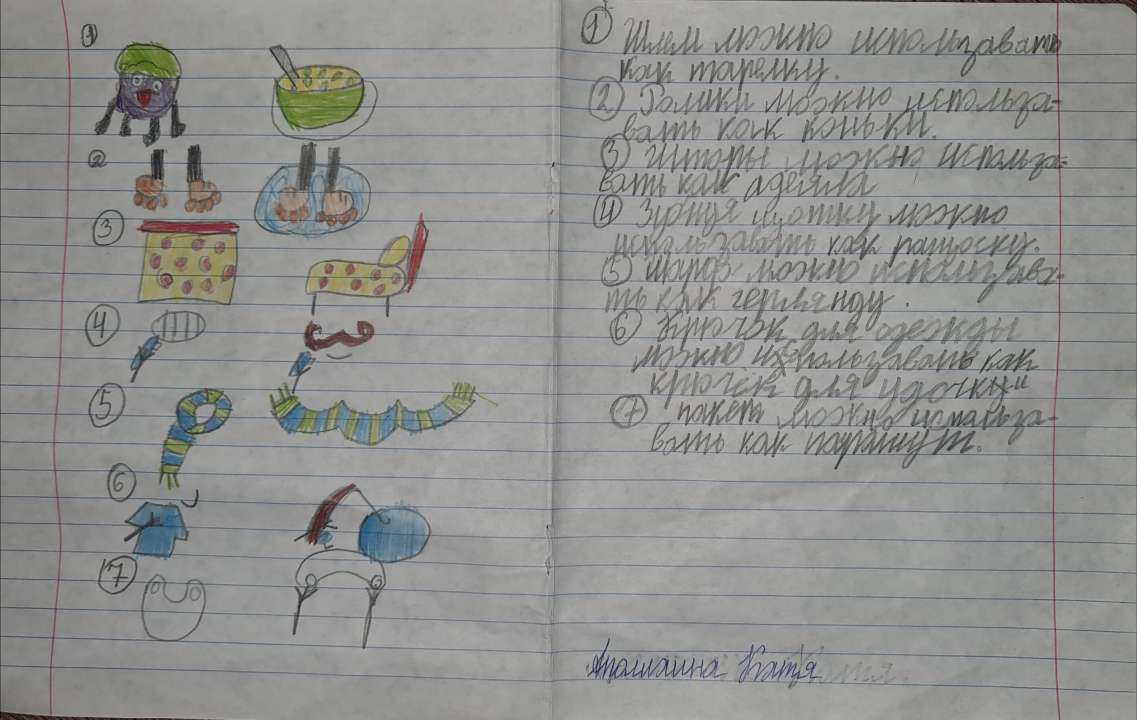 1
2
3
4
5
6
7
1 Шлем можно использавать
как тарелку.
2 Ролики можно использа-
вать как коньки.
3 Шторы можно использа-
вать как адеяла
4 можно
использавать как
5 можно использава-
ть как герлянду.
6 Крючок для одежды
можно использавать как
крючёк для удочки
7 пакет можно использа-
вать как парашут.
Катя